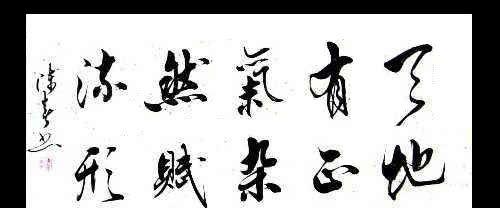 天地
有正
氣杂
然賦
流形